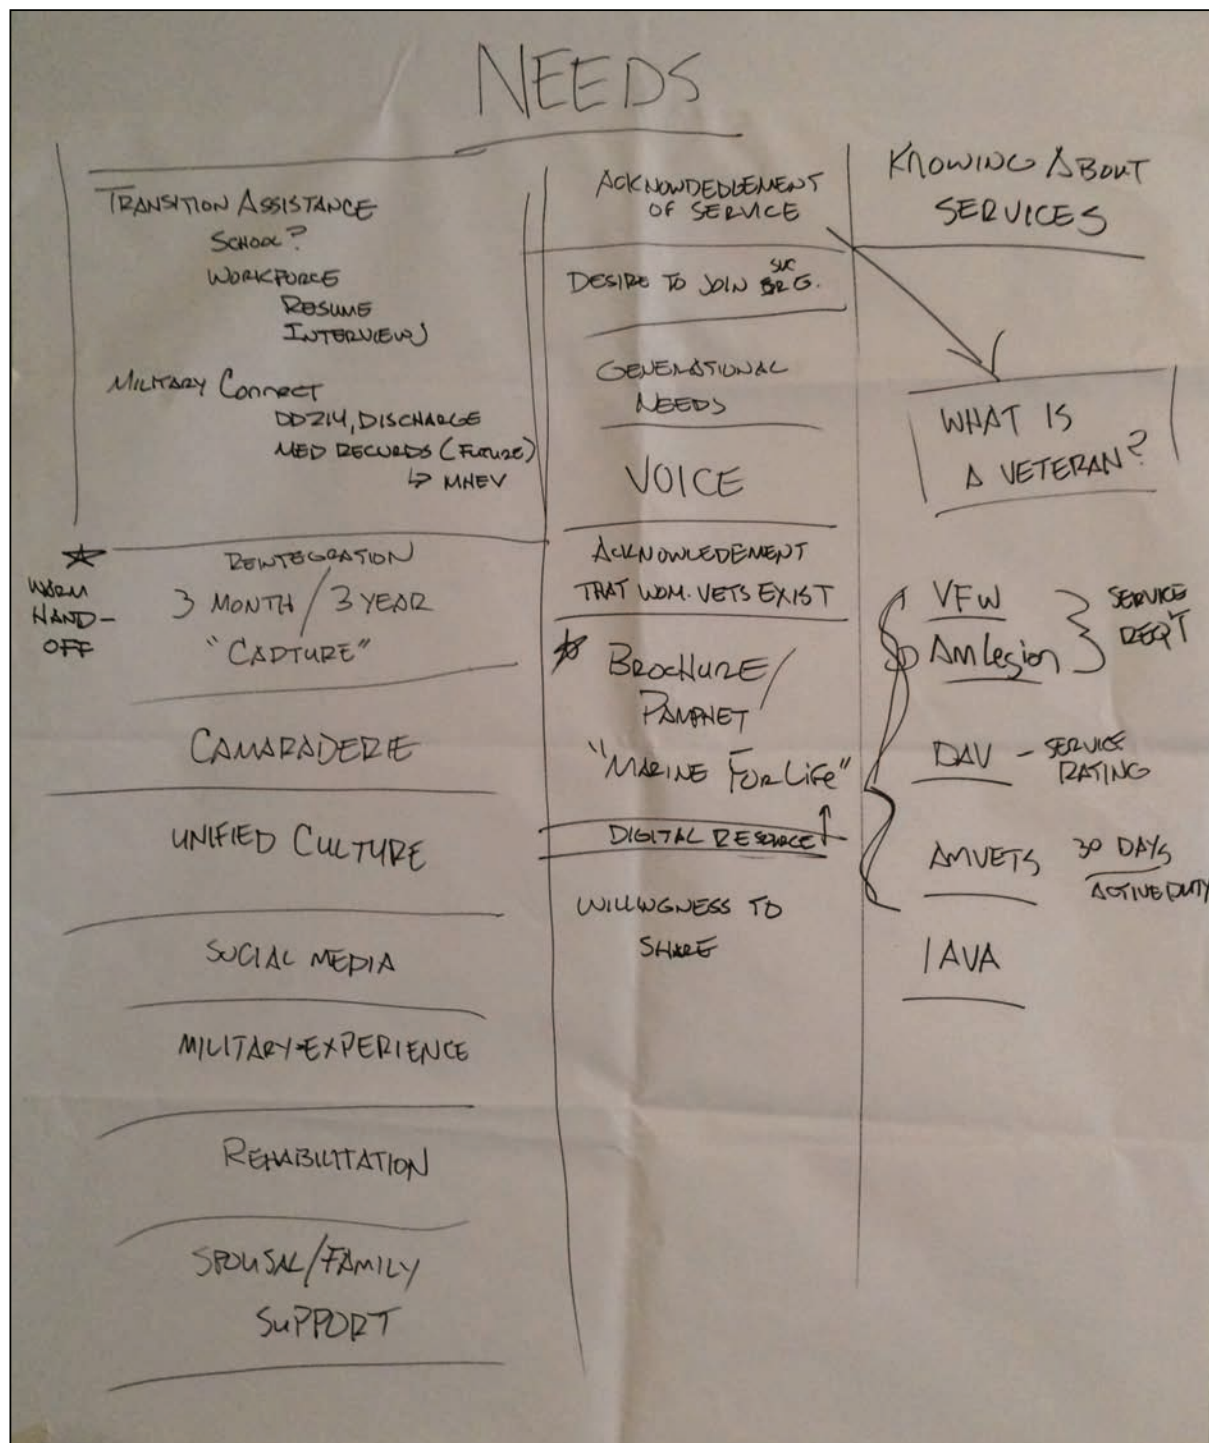 NEEDS
TRANSITION ASSISTANCE
SCHOOL?
WORKFORCE
RESUME
INTERVIEWS
MILITARY CONNECT
DD214, DISCHARGE
MED RECORDS (FUTURE)
↳ MHEV
★
WARM
HAND-
OFF
REINTEGRATION
3 MONTH / 3 YEAR
"CAPTURE"
CAMARADERIE
UNIFIED CULTURE
SOCIAL MEDIA
MILITARY EXPERIENCE
REHABILITATION
SPOUSAL/FAMILY
SUPPORT
ACKNOWDEDLEMENT
OF SERVICE
SVC
DESIRE TO JOIN ORG.
GENERATIONAL
NEEDS
VOICE
ACKNOWLEDEMENT
THAT WOM. VETS EXIST
★ BROCHURE/
PAMPHET
"MARINE FOR LIFE"
DIGITAL RESOURCE ↑
WILLINGNESS TO
SHARE
KNOWING ABOUT
SERVICES
WHAT IS
A VETERAN?
VFW
AM Legion } SERVICE
REQ'T
DAV - SERVICE
RATING
AMVETS 30 DAYS
ACTIVE DUTY
IAVA